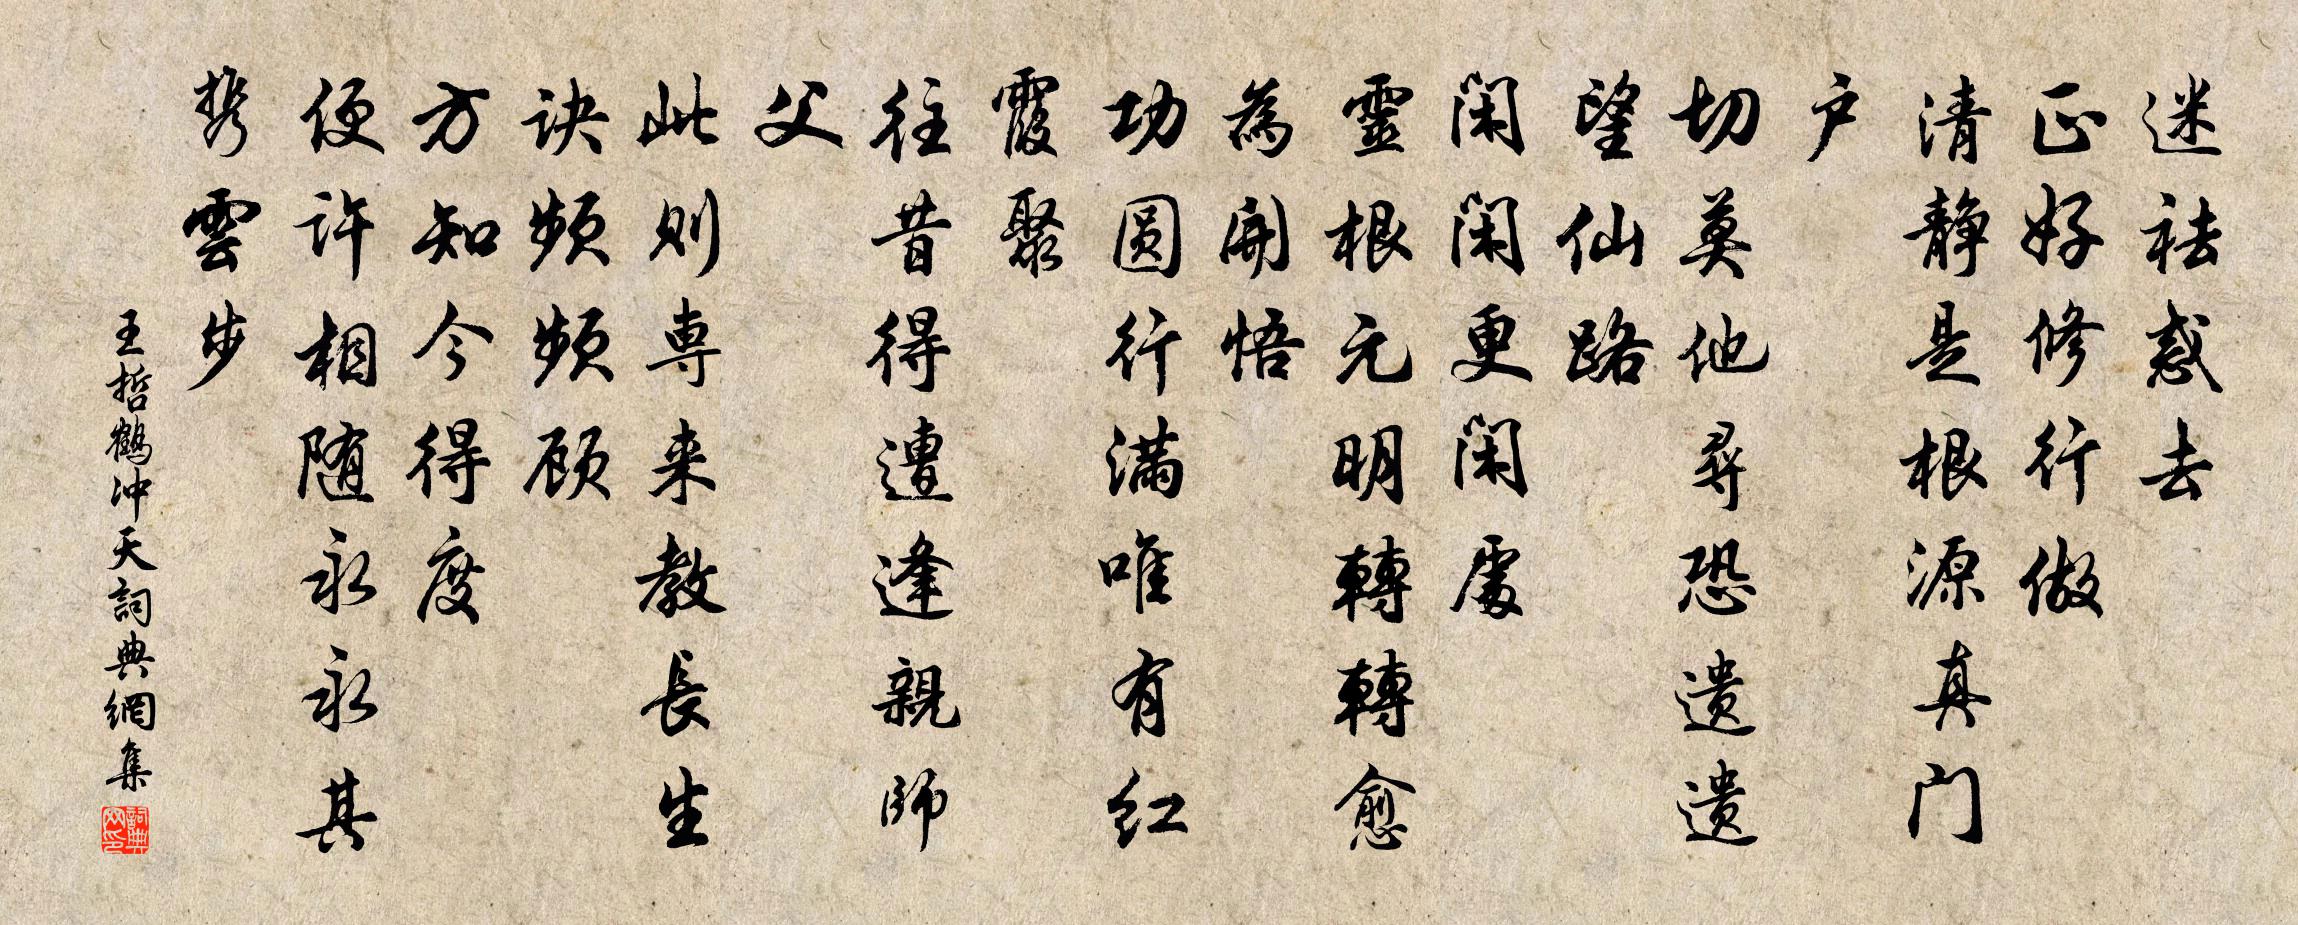 迷祛惑去
正好修行做
清静是根源真门
户
切莫他寻恐遗遗
望仙路
闲闲更闲處
靈根元明轉轉愈
為開悟
功圆行满唯有红
霞聚
往昔得遭逢親师
父
此则専来教長生
诀频频顾
方知今得度
便许相随永永其
携雲步
王哲鹤冲天詞典網集
詞典网印